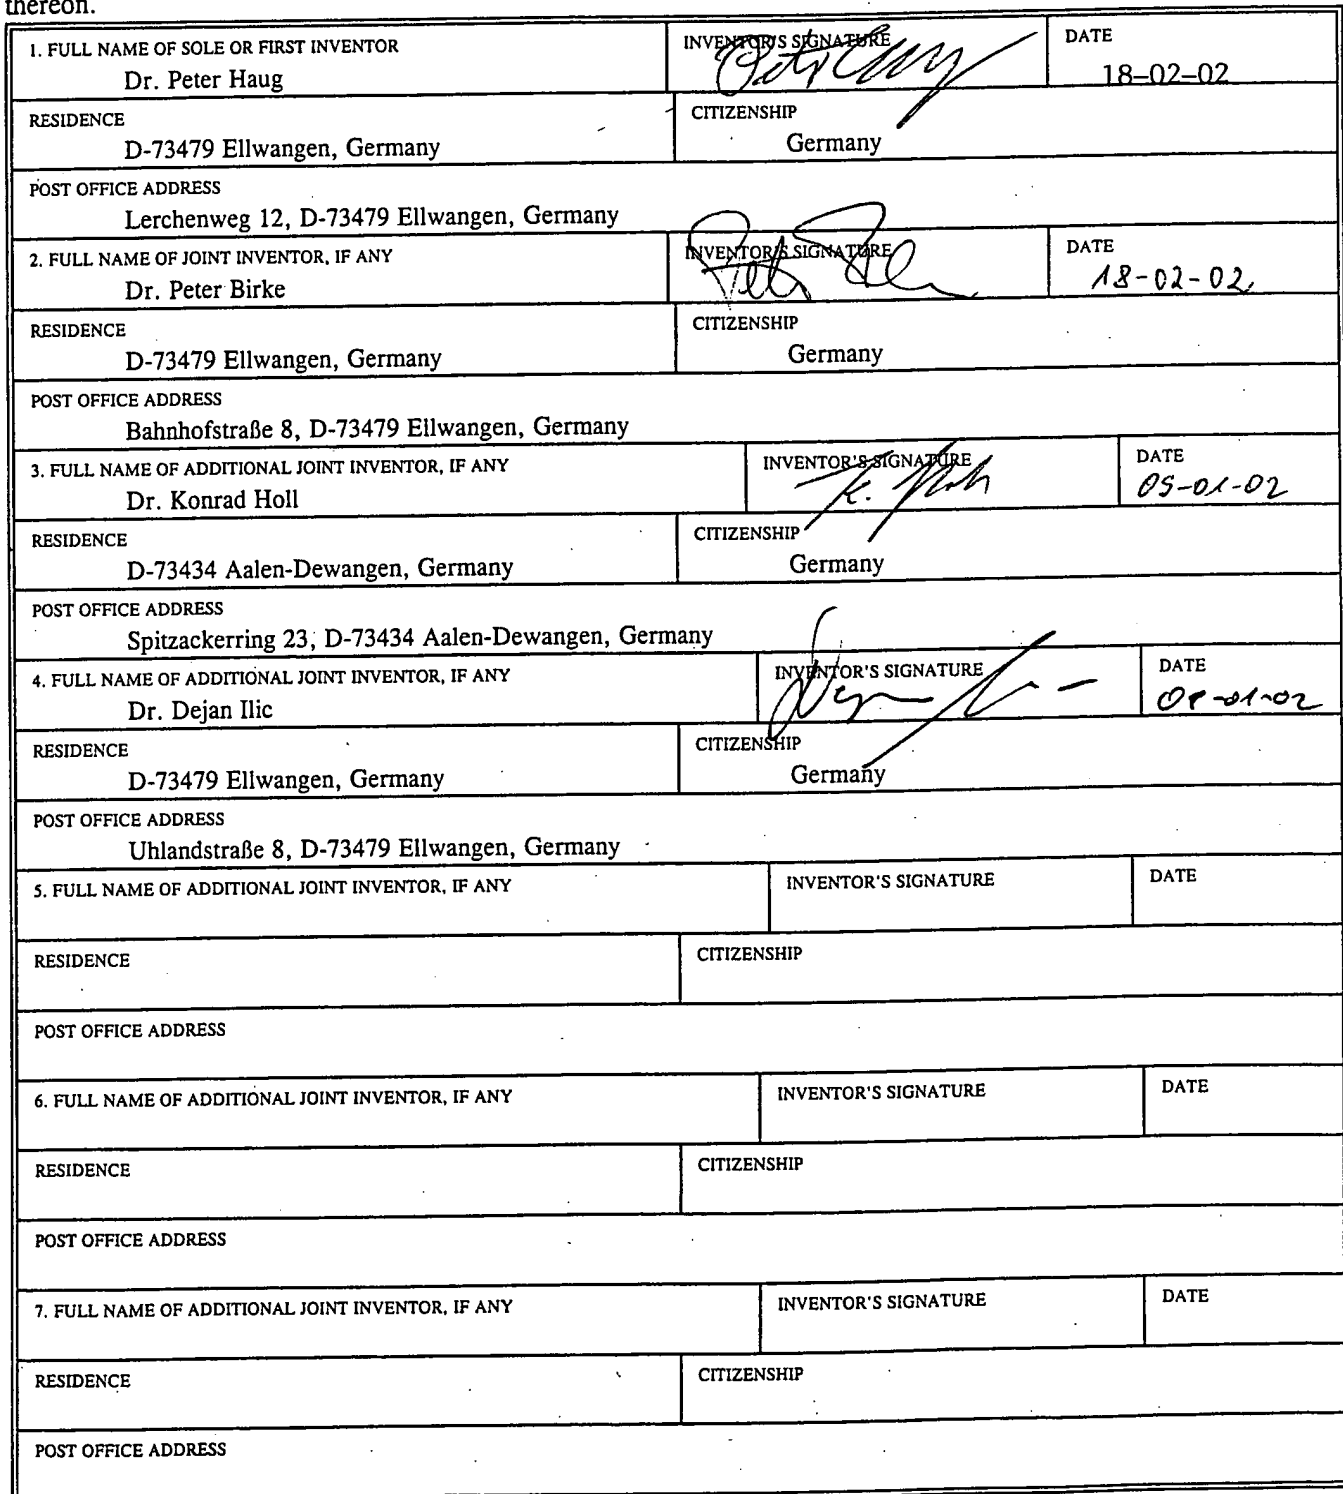 thereon.
1. FULL NAME OF SOLE OR FIRST INVENTOR
Dr. Peter Haug
INVENTOR'S SIGNATURE
DATE
18-02-02
RESIDENCE
D-73479 Ellwangen, Germany
CITIZENSHIP
Germany
POST OFFICE ADDRESS
Lerchenweg 12, D-73479 Ellwangen, Germany
2. FULL NAME OF JOINT INVENTOR, IF ANY
Dr. Peter Birke
INVENTOR'S SIGNATURE
DATE
18-02-02
RESIDENCE
D-73479 Ellwangen, Germany
CITIZENSHIP
Germany
POST OFFICE ADDRESS
Bahnhofstraße 8, D-73479 Ellwangen, Germany
3. FULL NAME OF ADDITIONAL JOINT INVENTOR, IF ANY
Dr. Konrad Holl
INVENTOR'S SIGNATURE
DATE
RESIDENCE
D-73434 Aalen-Dewangen, Germany
CITIZENSHIP
Germany
POST OFFICE ADDRESS
Spitzackerring 23, D-73434 Aalen-Dewangen, Germany
4. FULL NAME OF ADDITIONAL JOINT INVENTOR, IF ANY
Dr. Dejan Ilic
INVENTOR'S SIGNATURE
DATE
RESIDENCE
D-73479 Ellwangen, Germany
CITIZENSHIP
Germany
POST OFFICE ADDRESS
Uhlandstraße 8, D-73479 Ellwangen, Germany
5. FULL NAME OF ADDITIONAL JOINT INVENTOR, IF ANY
INVENTOR'S SIGNATURE
DATE
RESIDENCE
CITIZENSHIP
POST OFFICE ADDRESS
6. FULL NAME OF ADDITIONAL JOINT INVENTOR, IF ANY
INVENTOR'S SIGNATURE
DATE
RESIDENCE
CITIZENSHIP
POST OFFICE ADDRESS
7. FULL NAME OF ADDITIONAL JOINT INVENTOR, IF ANY
INVENTOR'S SIGNATURE
DATE
RESIDENCE
CITIZENSHIP
POST OFFICE ADDRESS